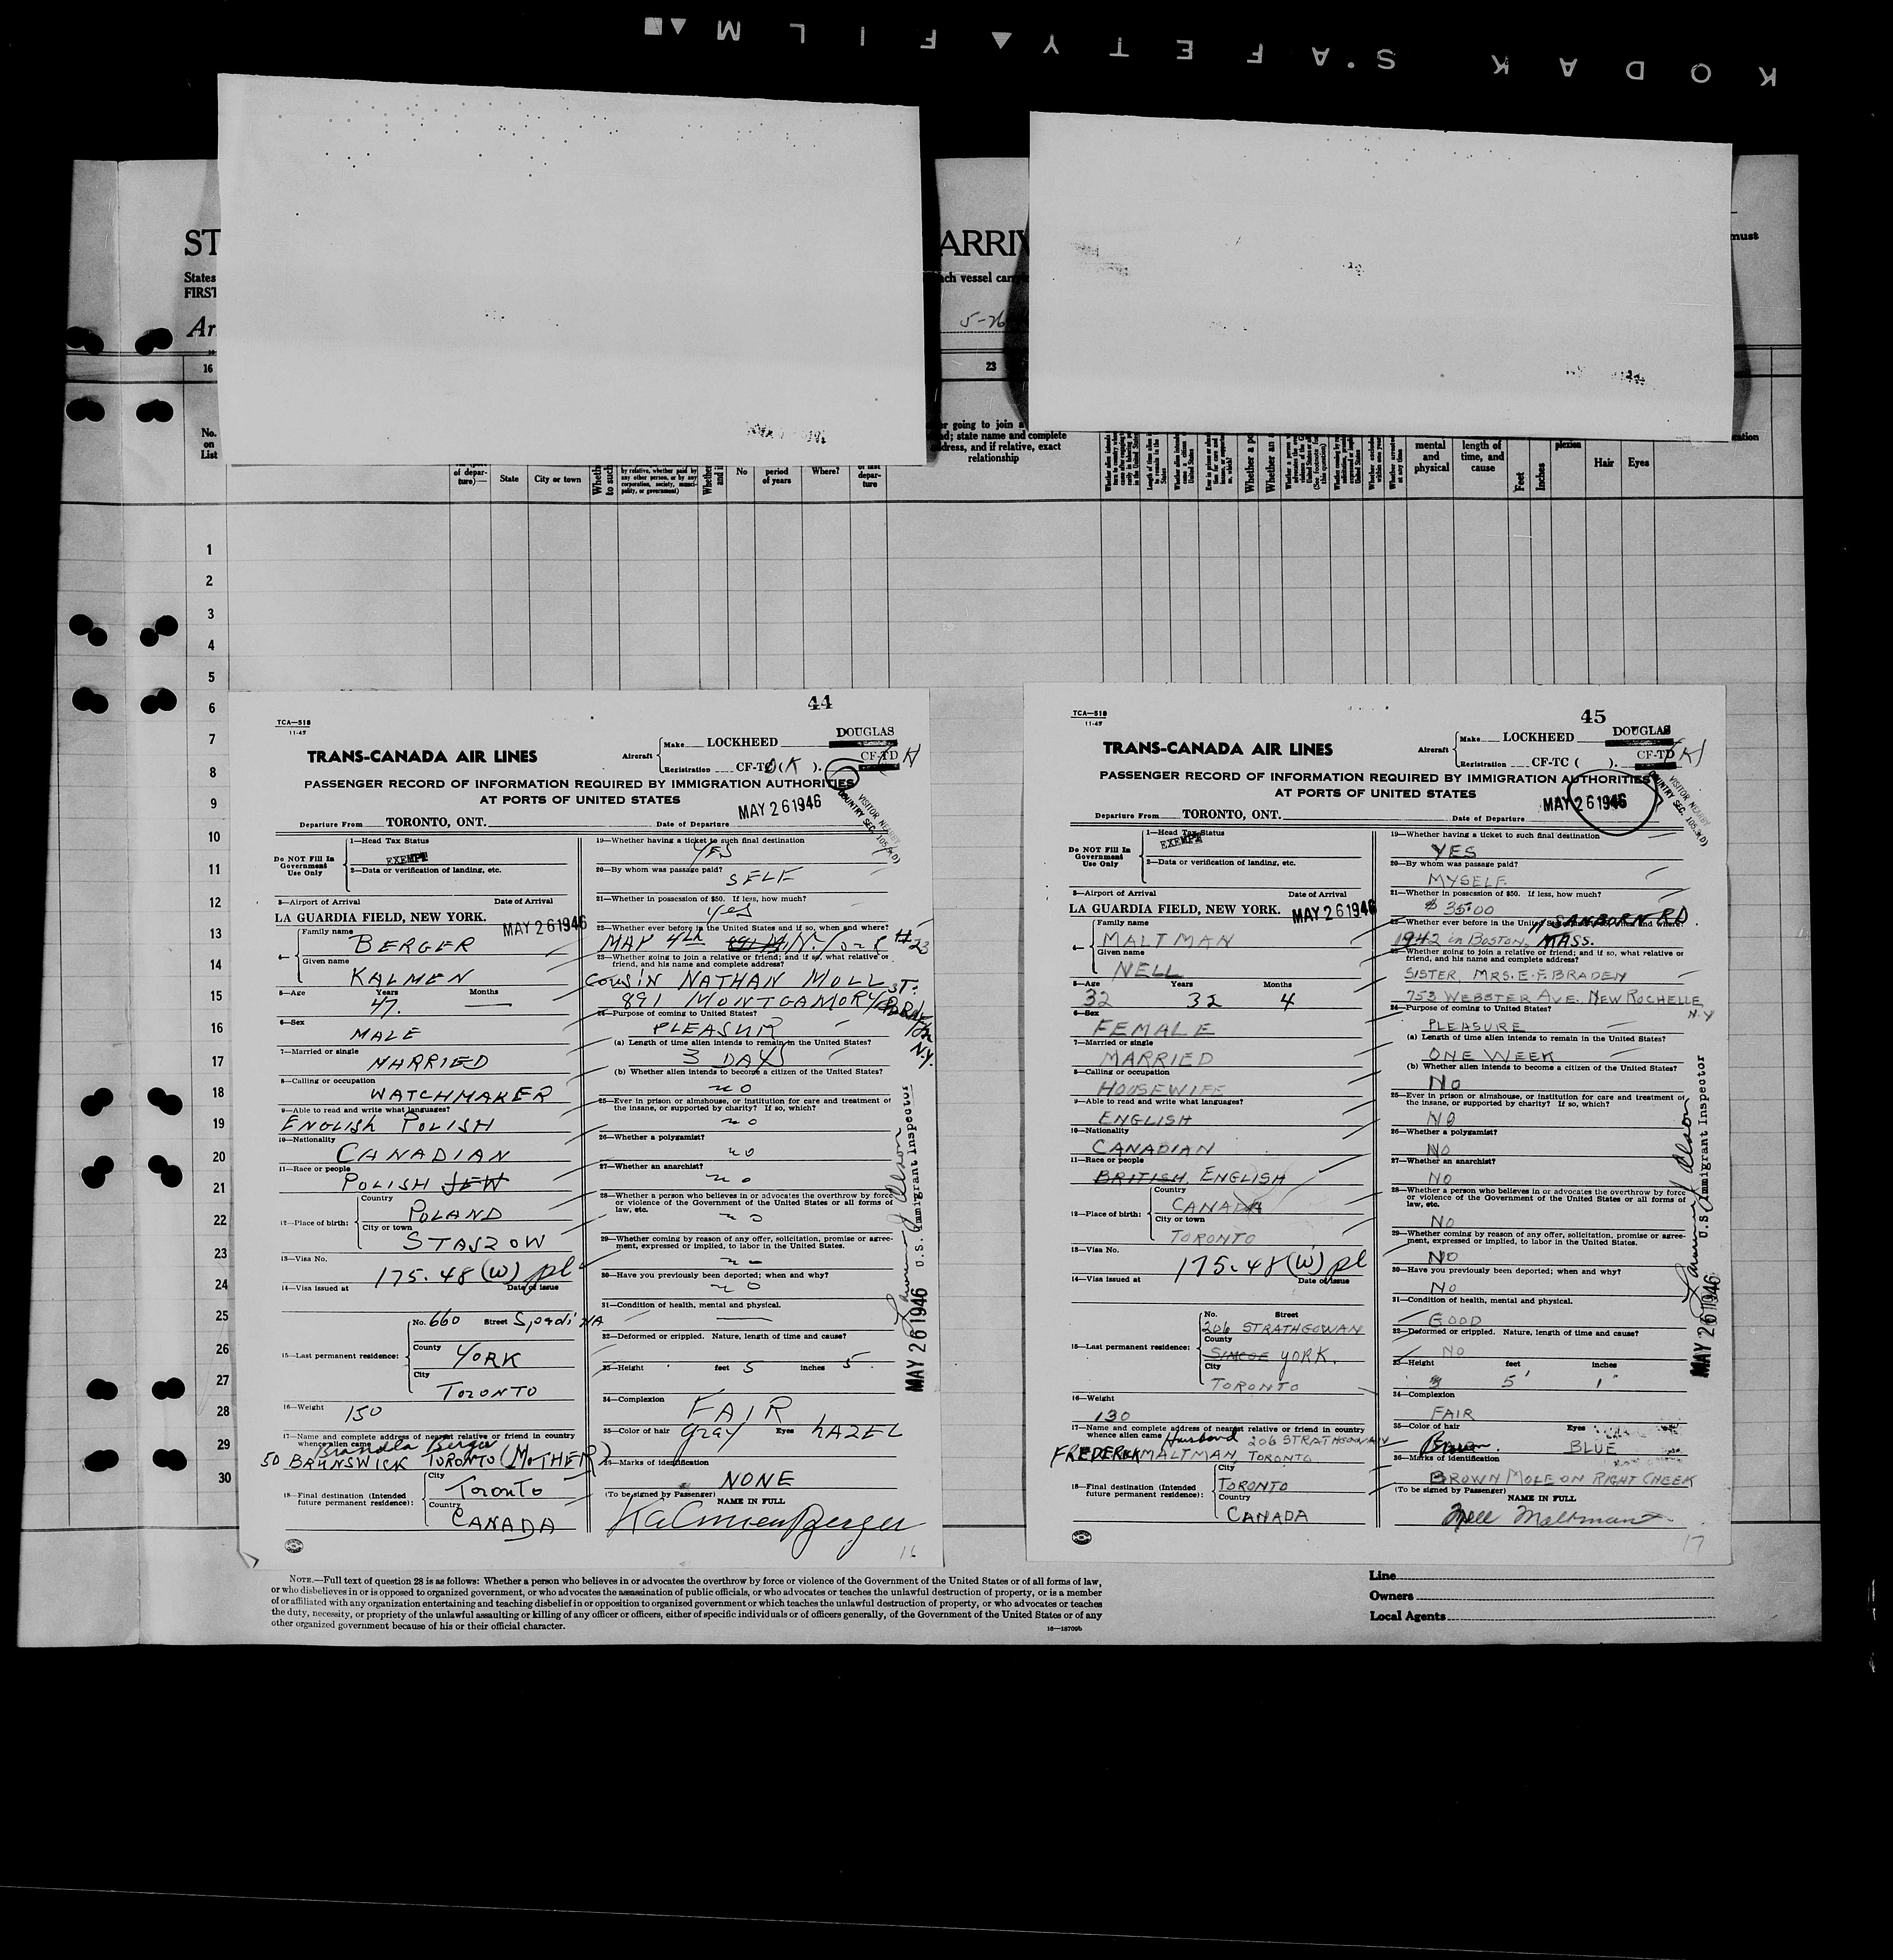 KODAK SAFETY FILM
ST
ARRIV
must
States
ach vessel carr
FIRST
Ar
5-26
16
23
No.
on
List
r going to join a
nd; state name and complete
dress, and if relative, exact
relationship
of depar-
ture)—
State
City or town
by relative, whether paid by
any other person, or by any
corporation, society, munici-
pality, or government)
No
period
of years
Where?
of last
depar-
ture
mental
and
physical
length of
time, and
cause
plexion
Feet
Inches
Hair
Eyes
1
2
3
4
5
6
7
8
9
10
11
12
13
14
15
16
17
18
19
20
21
22
23
24
25
26
27
28
29
30
44
TCA—518
11-45
TRANS-CANADA AIR LINES
Aircraft
Make LOCKHEED DOUGLAS
Registration CF-TC (K). CF-TD
PASSENGER RECORD OF INFORMATION REQUIRED BY IMMIGRATION AUTHORITIES
AT PORTS OF UNITED STATES
MAY 26 1946
Departure From TORONTO, ONT. Date of Departure
Do NOT Fill In
Government
Use Only
1—Head Tax Status
EXEMPT
2—Data or verification of landing, etc.
3—Airport of Arrival Date of Arrival
LA GUARDIA FIELD, NEW YORK. MAY 26 1946
4— Family name
BERGER
Given name
KALMEN
5—Age Years Months
47. —
6—Sex
MALE
7—Married or single
MARRIED
8—Calling or occupation
WATCHMAKER
9—Able to read and write what languages?
ENGLISH POLISH
10—Nationality
CANADIAN
11—Race or people
POLISH JEW
12—Place of birth:
Country
POLAND
City or town
STASZOW
13—Visa No.
175.48 (W) pl
14—Visa issued at Date of issue
15—Last permanent residence:
No. 660 Street SpadiNA
County
YORK
City
TORONTO
16—Weight
150
17—Name and complete address of nearest relative or friend in country
whence alien came
Brandla Berger
50 BRUNSWICK TORONTO (MOTHER)
18—Final destination (Intended
future permanent residence):
City
Toronto
Country
CANADA
19—Whether having a ticket to such final destination
YES
20—By whom was passage paid?
SELF
21—Whether in possession of $50. If less, how much?
yes
22—Whether ever before in the United States and if so, when and where?
MAY 4th
23—Whether going to join a relative or friend; and if so, what relative or
friend, and his name and complete address?
COUSIN NATHAN MOLL
891 MONTGAMORY ST.
N.Y.
24—Purpose of coming to United States?
PLEASUR
(a) Length of time alien intends to remain in the United States?
3 DAYS
(b) Whether alien intends to become a citizen of the United States?
no
25—Ever in prison or almshouse, or institution for care and treatment of
the insane, or supported by charity? If so, which?
no
26—Whether a polygamist?
no
27—Whether an anarchist?
no
28—Whether a person who believes in or advocates the overthrow by force
or violence of the Government of the United States or all forms of
law, etc.
no
29—Whether coming by reason of any offer, solicitation, promise or agree-
ment, expressed or implied, to labor in the United States.
no
30—Have you previously been deported; when and why?
no
31—Condition of health, mental and physical.
32—Deformed or crippled. Nature, length of time and cause?
33—Height feet 5 inches 5
34—Complexion
FAIR
35—Color of hair gray Eyes hAZEL
36—Marks of identification
NONE
(To be signed by Passenger)
NAME IN FULL
Kalmen Berger
16
VISITOR NEARBY
COUNTRY SEC.
MAY 26 1946
U.S. Immigrant Inspector
45
TCA—518
11-45
TRANS-CANADA AIR LINES
Aircraft
Make LOCKHEED DOUGLAS
Registration CF-TC ( ). CF-TD (K)
PASSENGER RECORD OF INFORMATION REQUIRED BY IMMIGRATION AUTHORITIES
AT PORTS OF UNITED STATES
MAY 26 1946
Departure From TORONTO, ONT. Date of Departure
Do NOT Fill In
Government
Use Only
1—Head Tax Status
EXEMPT
2—Data or verification of landing, etc.
3—Airport of Arrival Date of Arrival
LA GUARDIA FIELD, NEW YORK. MAY 26 1946
4— Family name
MALTMAN
Given name
NELL
5—Age Years Months
32 32 4
6—Sex
FEMALE
7—Married or single
MARRIED
8—Calling or occupation
HOUSEWIFE
9—Able to read and write what languages?
ENGLISH
10—Nationality
CANADIAN
11—Race or people
BRITISH, ENGLISH
12—Place of birth:
Country
CANADA
City or town
TORONTO
13—Visa No.
175.48 (W) pl
14—Visa issued at Date of issue
15—Last permanent residence:
No. Street
206 STRATHGOWAN
County
SIMCOE YORK.
City
TORONTO
16—Weight
130
17—Name and complete address of nearest relative or friend in country
whence alien came Husband 206 STRATHGOWAN
FREDERICK MALTMAN, TORONTO
18—Final destination (Intended
future permanent residence):
City
TORONTO
Country
CANADA
19—Whether having a ticket to such final destination
YES
20—By whom was passage paid?
MYSELF.
21—Whether in possession of $50. If less, how much?
$35.00
SANBORN RD.
22—Whether ever before in the United States and if so, when and where?
1942 in BOSTON, MASS.
23—Whether going to join a relative or friend; and if so, what relative or
friend, and his name and complete address?
SISTER, MRS. E. F. BRADEN
753 WEBSTER AVE. NEW ROCHELLE
N.Y
24—Purpose of coming to United States?
PLEASURE
(a) Length of time alien intends to remain in the United States?
ONE WEEK
(b) Whether alien intends to become a citizen of the United States?
NO
25—Ever in prison or almshouse, or institution for care and treatment of
the insane, or supported by charity? If so, which?
NO
26—Whether a polygamist?
NO
27—Whether an anarchist?
NO
28—Whether a person who believes in or advocates the overthrow by force
or violence of the Government of the United States or all forms of
law, etc.
NO
29—Whether coming by reason of any offer, solicitation, promise or agree-
ment, expressed or implied, to labor in the United States.
NO
30—Have you previously been deported; when and why?
NO
31—Condition of health, mental and physical.
GOOD
32—Deformed or crippled. Nature, length of time and cause?
NO
33—Height feet inches
5' 1"
34—Complexion
FAIR
35—Color of hair Eyes
Brown. BLUE
36—Marks of identification
BROWN MOLE ON RIGHT CHEEK
(To be signed by Passenger)
NAME IN FULL
Nell Maltman
17
VISITOR NEARBY
COUNTRY SEC.
MAY 26 1946
U.S. Immigrant Inspector
NOTE.—Full text of question 28 is as follows: Whether a person who believes in or advocates the overthrow by force or violence of the Government of the United States or of all forms of law,
or who disbelieves in or is opposed to organized government, or who advocates the assassination of public officials, or who advocates or teaches the unlawful destruction of property, or is a member
of or affiliated with any organization entertaining and teaching disbelief in or opposition to organized government or which teaches the unlawful destruction of property, or who advocates or teaches
the duty, necessity, or propriety of the unlawful assaulting or killing of any officer or officers, either of specific individuals or of officers generally, of the Government of the United States or of any
other organized government because of his or their official character.
16—18709b
Line
Owners
Local Agents